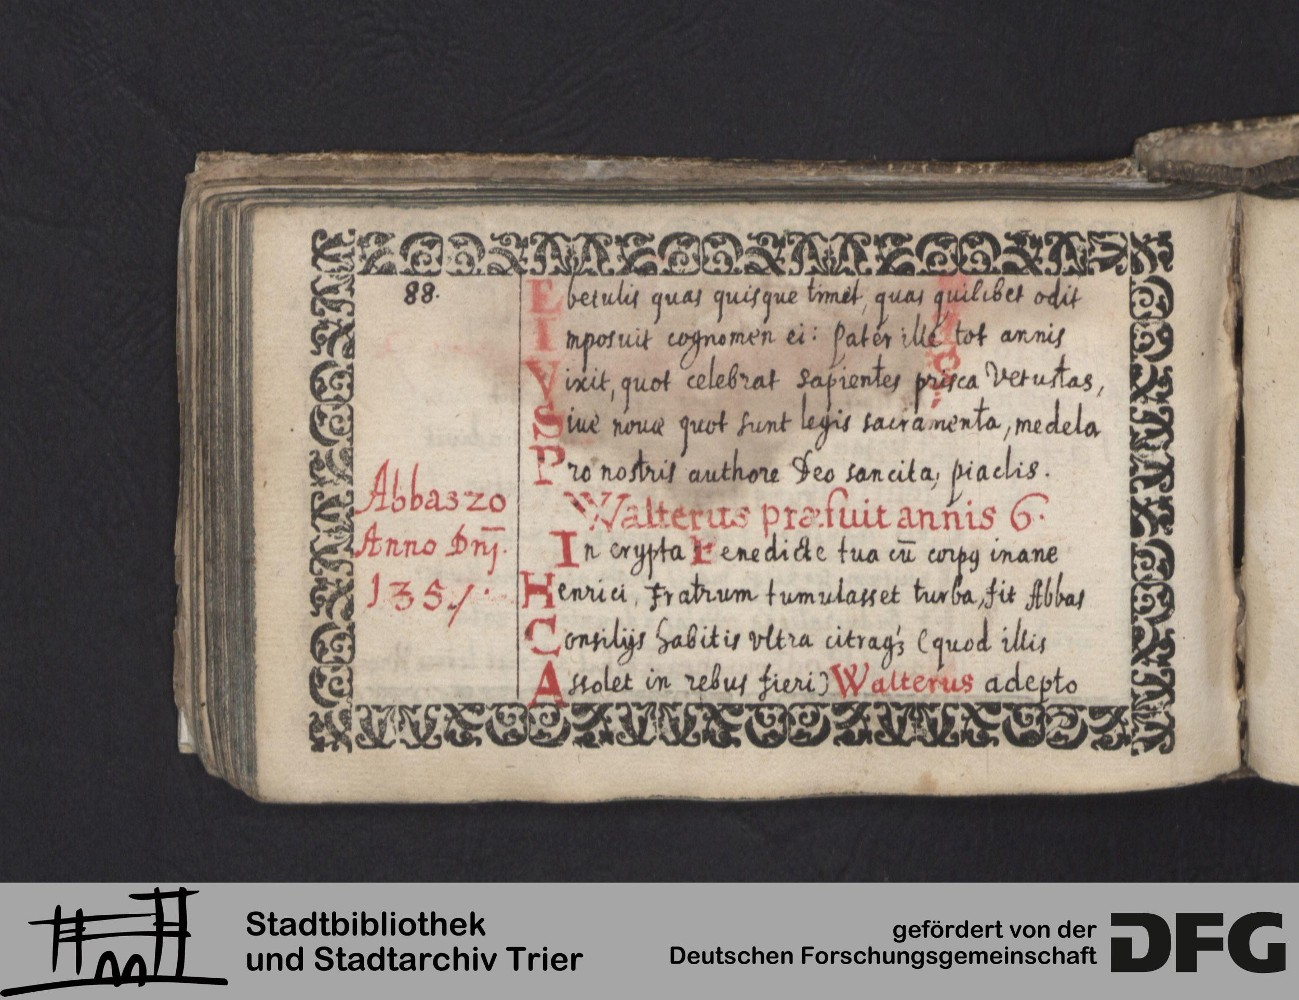 88.
E betulis quas quisque timet, quas quilibet odit
Imposuit cognomen ei: pater ille tot annis
Vixit, quot celebrat sapientes prisca Vetustas,
Siue nouæ quot sunt legis sacramenta, medela
Pro nostris authore Deo sancita, piaclis.
Abbas 20
Anno Dn̄j.
1357.
Walterus præfuit annis 6.
In crypta Benedicte tua cū corpꝯ inane
Henrici, Fratrum tumulasset turba, fit Abbas
Consilijs habitis vltra citraq́ꝫ (quod illis
Assolet in rebus fieri) Walterus adepto
Stadtbibliothek
und Stadtarchiv Trier
gefördert von der
Deutschen Forschungsgemeinschaft
DFG